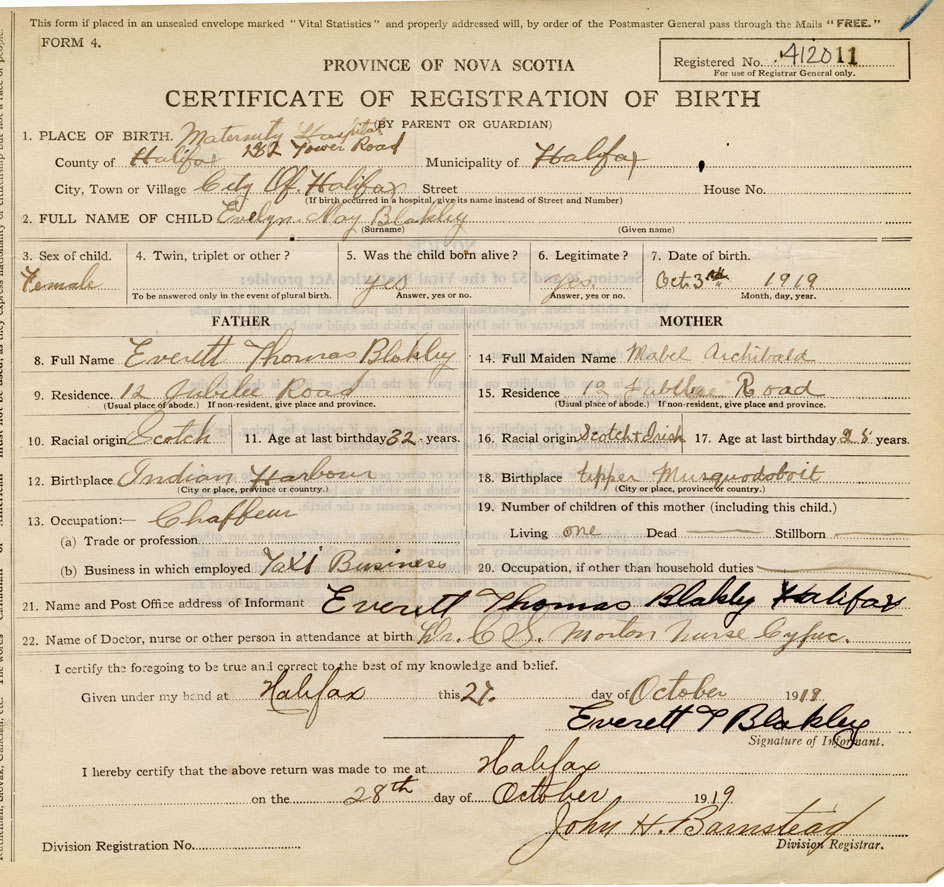 This form if placed in an unsealed envelope marked "Vital Statistics" and properly addressed will, by order of the Postmaster General pass through the Mails "FREE."
FORM 4.
Registered No. 412011
For use of Registrar General only.
PROVINCE OF NOVA SCOTIA
CERTIFICATE OF REGISTRATION OF BIRTH
(BY PARENT OR GUARDIAN)
1. PLACE OF BIRTH. Maternity Hospital
County of Halifax Tower Road Municipality of Halifax
City, Town or Village City Of Halifax Street House No.
(If birth occurred in a hospital, give its name instead of Street and Number)
2. FULL NAME OF CHILD Evelyn May Blakley
(Surname) (Given name)
3. Sex of child. 4. Twin, triplet or other? 5. Was the child born alive? 6. Legitimate? 7. Date of birth.
Female yes yes Oct. 3rd 1919
To be answered only in the event of plural birth. Answer, yes or no. Answer, yes or no. Month, day, year.
FATHER MOTHER
8. Full Name Everett Thomas Blakley 14. Full Maiden Name Mabel Archibald
9. Residence. 12 Jubilee Road 15. Residence Road
(Usual place of abode.) If non-resident, give place and province. (Usual place of abode.) If non-resident, give place and province.
10. Racial origin Scotch 11. Age at last birthday 32. years. 16. Racial origin Scotch & Irish 17. Age at last birthday 28 years.
12. Birthplace Indian Harbour 18. Birthplace Upper Musquodoboit
(City or place, province or country.) (City or place, province or country.)
13. Occupation:— Chaffeur 19. Number of children of this mother (including this child.)
(a) Trade or profession Living one Dead Stillborn
(b) Business in which employed Taxi Business 20. Occupation, if other than household duties
21. Name and Post Office address of Informant Everett Thomas Blakly Halifax
22. Name of Doctor, nurse or other person in attendance at birth Dr. C S. Morton Nurse
I certify the foregoing to be true and correct to the best of my knowledge and belief.
Given under my hand at Halifax this 27. day of October 1919.
Everett T Blakley
Signature of Informant.
I hereby certify that the above return was made to me at Halifax
on the 28th day of October 1919
John H. Barnstead
Division Registration No. Division Registrar.